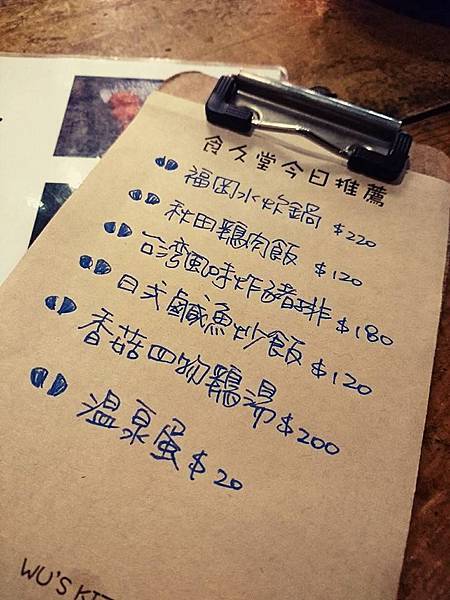 食久堂今日推薦
福岡水炊鍋 $220
秋田鷄肉飯 $120
台湾風味炸豬排 $180
日式鹹魚炒飯 $120
香菇四物鷄湯 $200
温泉蛋 $20
WU'S